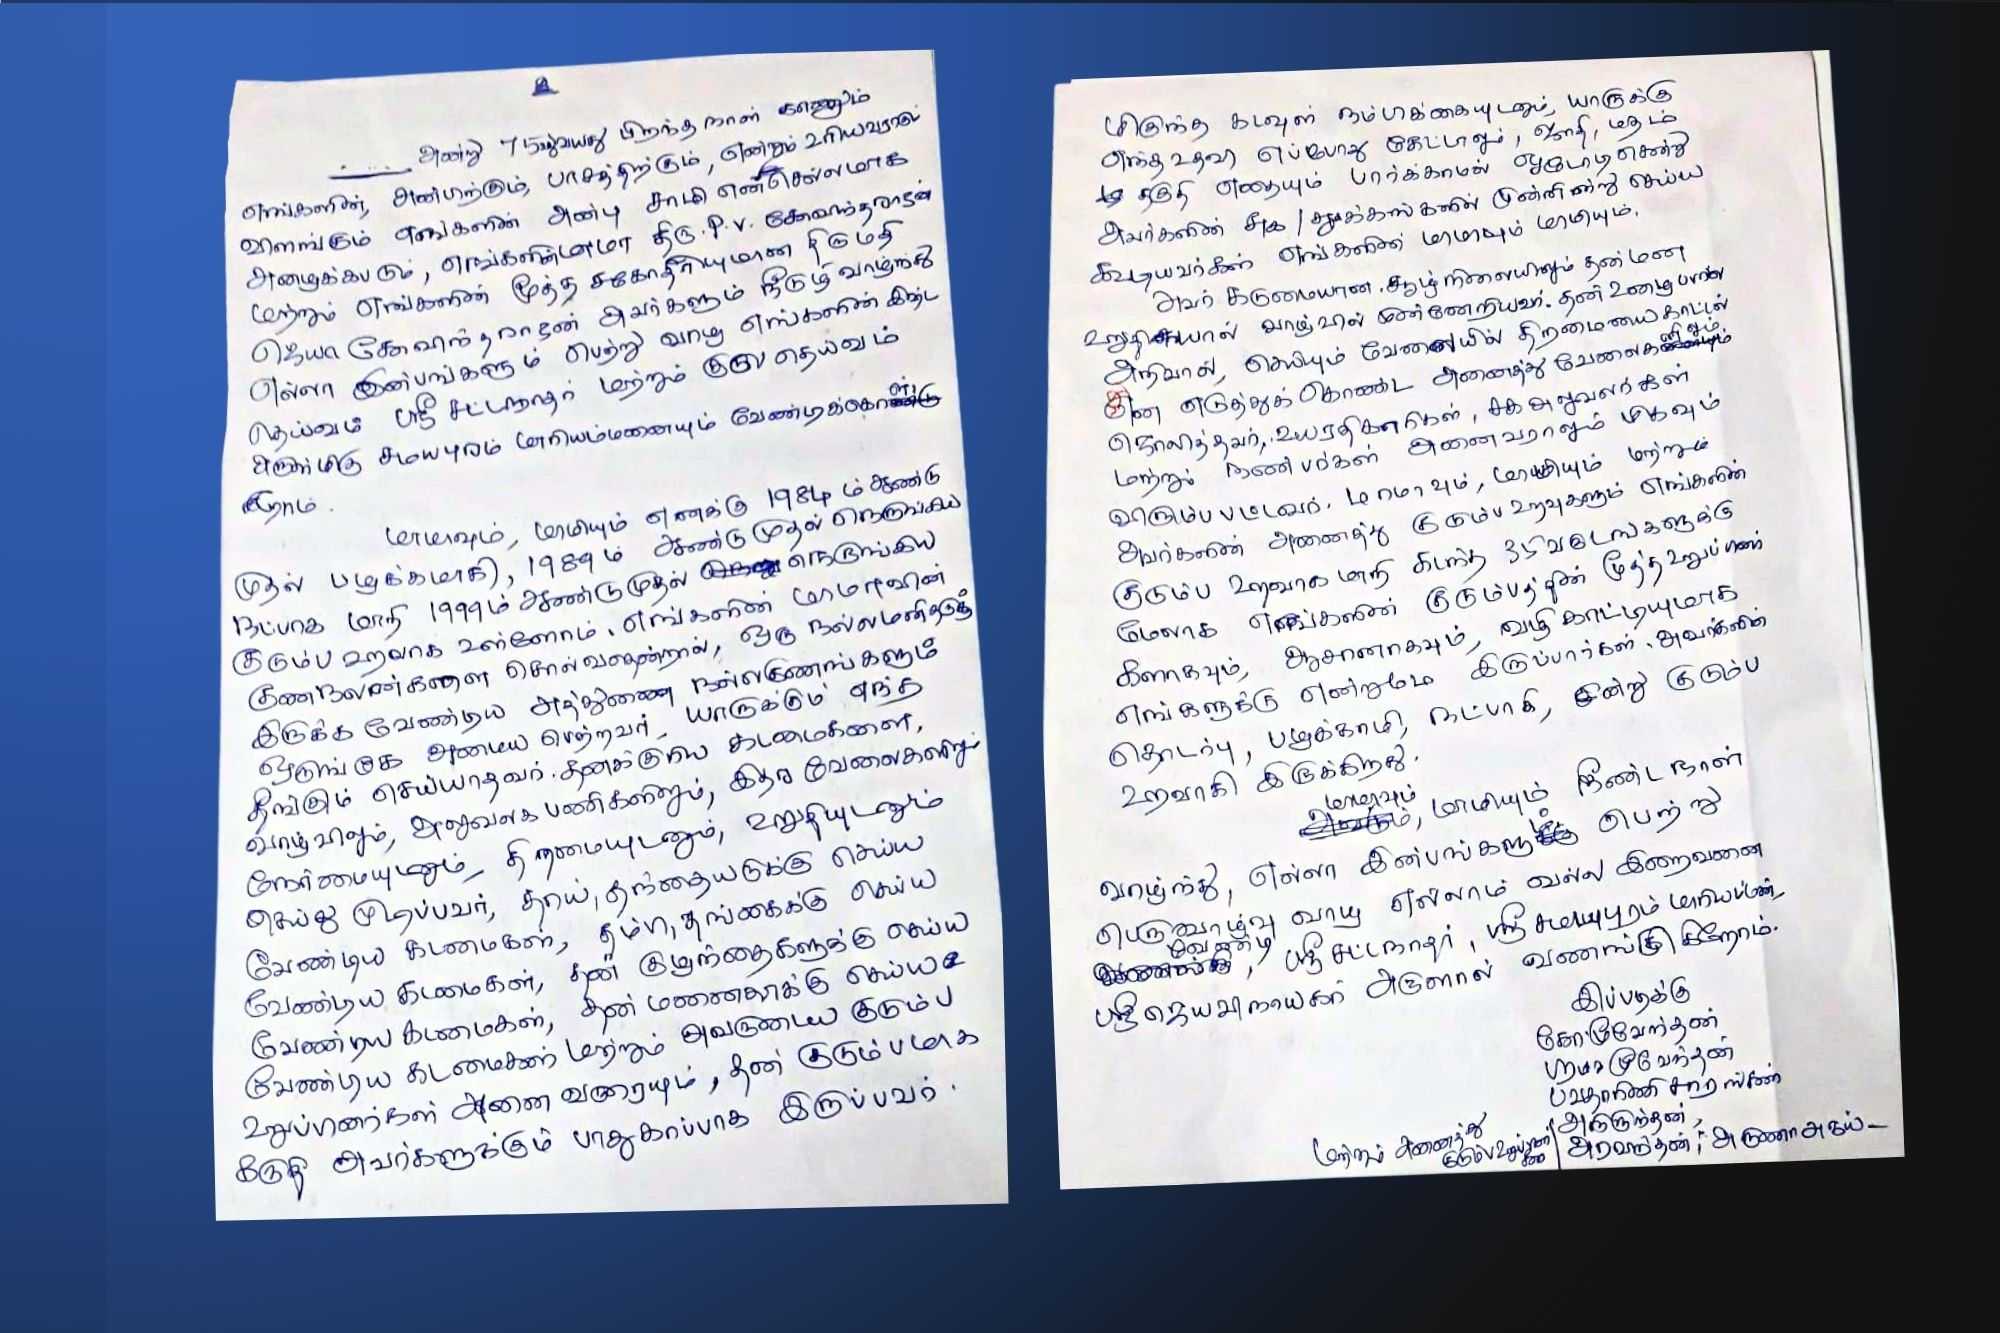 உ
அன்று 75வது வயது பிறந்த நாள் காணும்
எங்களின், அன்பிற்கும், பாசத்திற்கும், என்றும் உரியவராய்
விளங்கும் எங்களின் அன்பு சாமி என் செல்லமாக
அழைக்கபடும், எங்களின் மாமா திரு. P.V. கோவிந்தராஜன்
மற்றும் எங்களின் மூத்த சகோதரியுமான திருமதி
ஜெயா கோவிந்தராஜன் அவர்களும் நீடுழி வாழ்ந்து
எல்லா இன்பங்களும் பெற்று வாழ எங்களின் இஷ்ட
தெய்வம் ஸ்ரீ சட்டநாதர் மற்றும் குல தெய்வம்
அருள்மிகு சமயபுரம் மாரியம்மனையும் வேண்டிக்கொள்
கிறோம்.
மாமாவும், மாமியும் எனக்கு 1984 ம் ஆண்டு
முதல் பழக்கமாகி, 1989 ம் ஆண்டு முதல் நெருங்கிய
நட்பாக மாறி 1999 ம் ஆண்டு முதல் நெருங்கிய
குடும்ப உறவாக உள்ளோம். எங்களின் மாமாவின்
குணநலன்களை சொல்வதென்றால், ஒரு நல்ல மனிதருக்கு
இருக்க வேண்டிய அத்துணை நல்லகுணங்களும்
ஒருங்கே அமைய பெற்றவர், யாருக்கும் எந்த
தீங்கும் செய்யாதவர். தனக்குரிய கடமைகளை,
வாழ்விலும், அலுவலக பணிகளிலும், இதர வேலைகளிலும்
நேர்மையுடனும், திறமையுடனும், உறுதியுடனும்
செய்து முடிப்பவர், தாய், தந்தையருக்கு செய்ய
வேண்டிய கடமைகள், தம்பி, தங்கைக்கு செய்ய
வேண்டிய கடமைகள், தன் குழந்தைகளுக்கு செய்ய
வேண்டிய கடமைகள், தன் மனைவிக்கு செய்ய
வேண்டிய கடமைகள் மற்றும் அவருடைய குடும்ப
உறுப்பினர்கள் அனைவரையும், தன் குடும்பமாக
கருதி அவர்களுக்கும் பாதுகாப்பாக இருப்பவர்.
மிகுந்த கடவுள் நம்பிக்கையுடனும், யாருக்கு
எந்த உதவி எப்போது கேட்டாலும், ஜாதி, மதம்
தகுதி எதையும் பார்க்காமல் ஓடோடி சென்று
அவர்களின் சுக / துக்கங்களில் முன்னின்று செய்ய
கூடியவர்கள் எங்களின் மாமாவும் மாமியும்.
அவர் கடுமையான சூழ்நிலையிலும் தன் மன
உறுதியால் வாழ்வில் முன்னேறியவர். தன் உழைப்பால்
அறிவால், செய்யும் வேலையில் திறமையை காட்டி
தான் எடுத்துக் கொண்ட அனைத்து வேலைகளிலும்
ஜொலித்தவர், உயரதிகாரிகள், சக அலுவலர்கள்
மற்றும் நண்பர்கள் அனைவராலும் மிகவும்
விரும்பபட்டவர். மாமாவும், மாமியும் மற்றும்
அவர்களின் அனைத்து குடும்ப உறவுகளும் எங்களின்
குடும்ப உறவாக மாறி கடந்த 35 வருடங்களுக்கு
மேலாக எங்களின் குடும்பத்தின் மூத்த உறுப்பினர்
களாகவும், ஆசானாகவும், வழிகாட்டியுமாக
எங்களுக்கு என்றுமே இருப்பார்கள். அவர்களின்
தொடர்பு, பழக்கமாகி, நட்பாகி, இன்று குடும்ப
உறவாகி இருக்கிறது.
மாமாவும், மாமியும் நீண்ட நாள்
வாழ்ந்து, எல்லா இன்பங்களும் பெற்று
பெருவாழ்வு வாழ எல்லாம் வல்ல இறைவனை
வேண்டி, ஸ்ரீ சட்டநாதர், ஸ்ரீ சமயபுரம் மாரியம்மன்,
ஸ்ரீ ஜெயவிநாயகர் அருளால் வணங்குகிறோம்.
இப்படிக்கு
கோமூவேந்தன்
பாமாமூவேந்தன்
பவதாரிணி
அருந்தன்,
அரவிந்தன், அருணா அஜய் —
மற்றும் அனைத்து
குடும்ப உறுப்பினர்
கள்